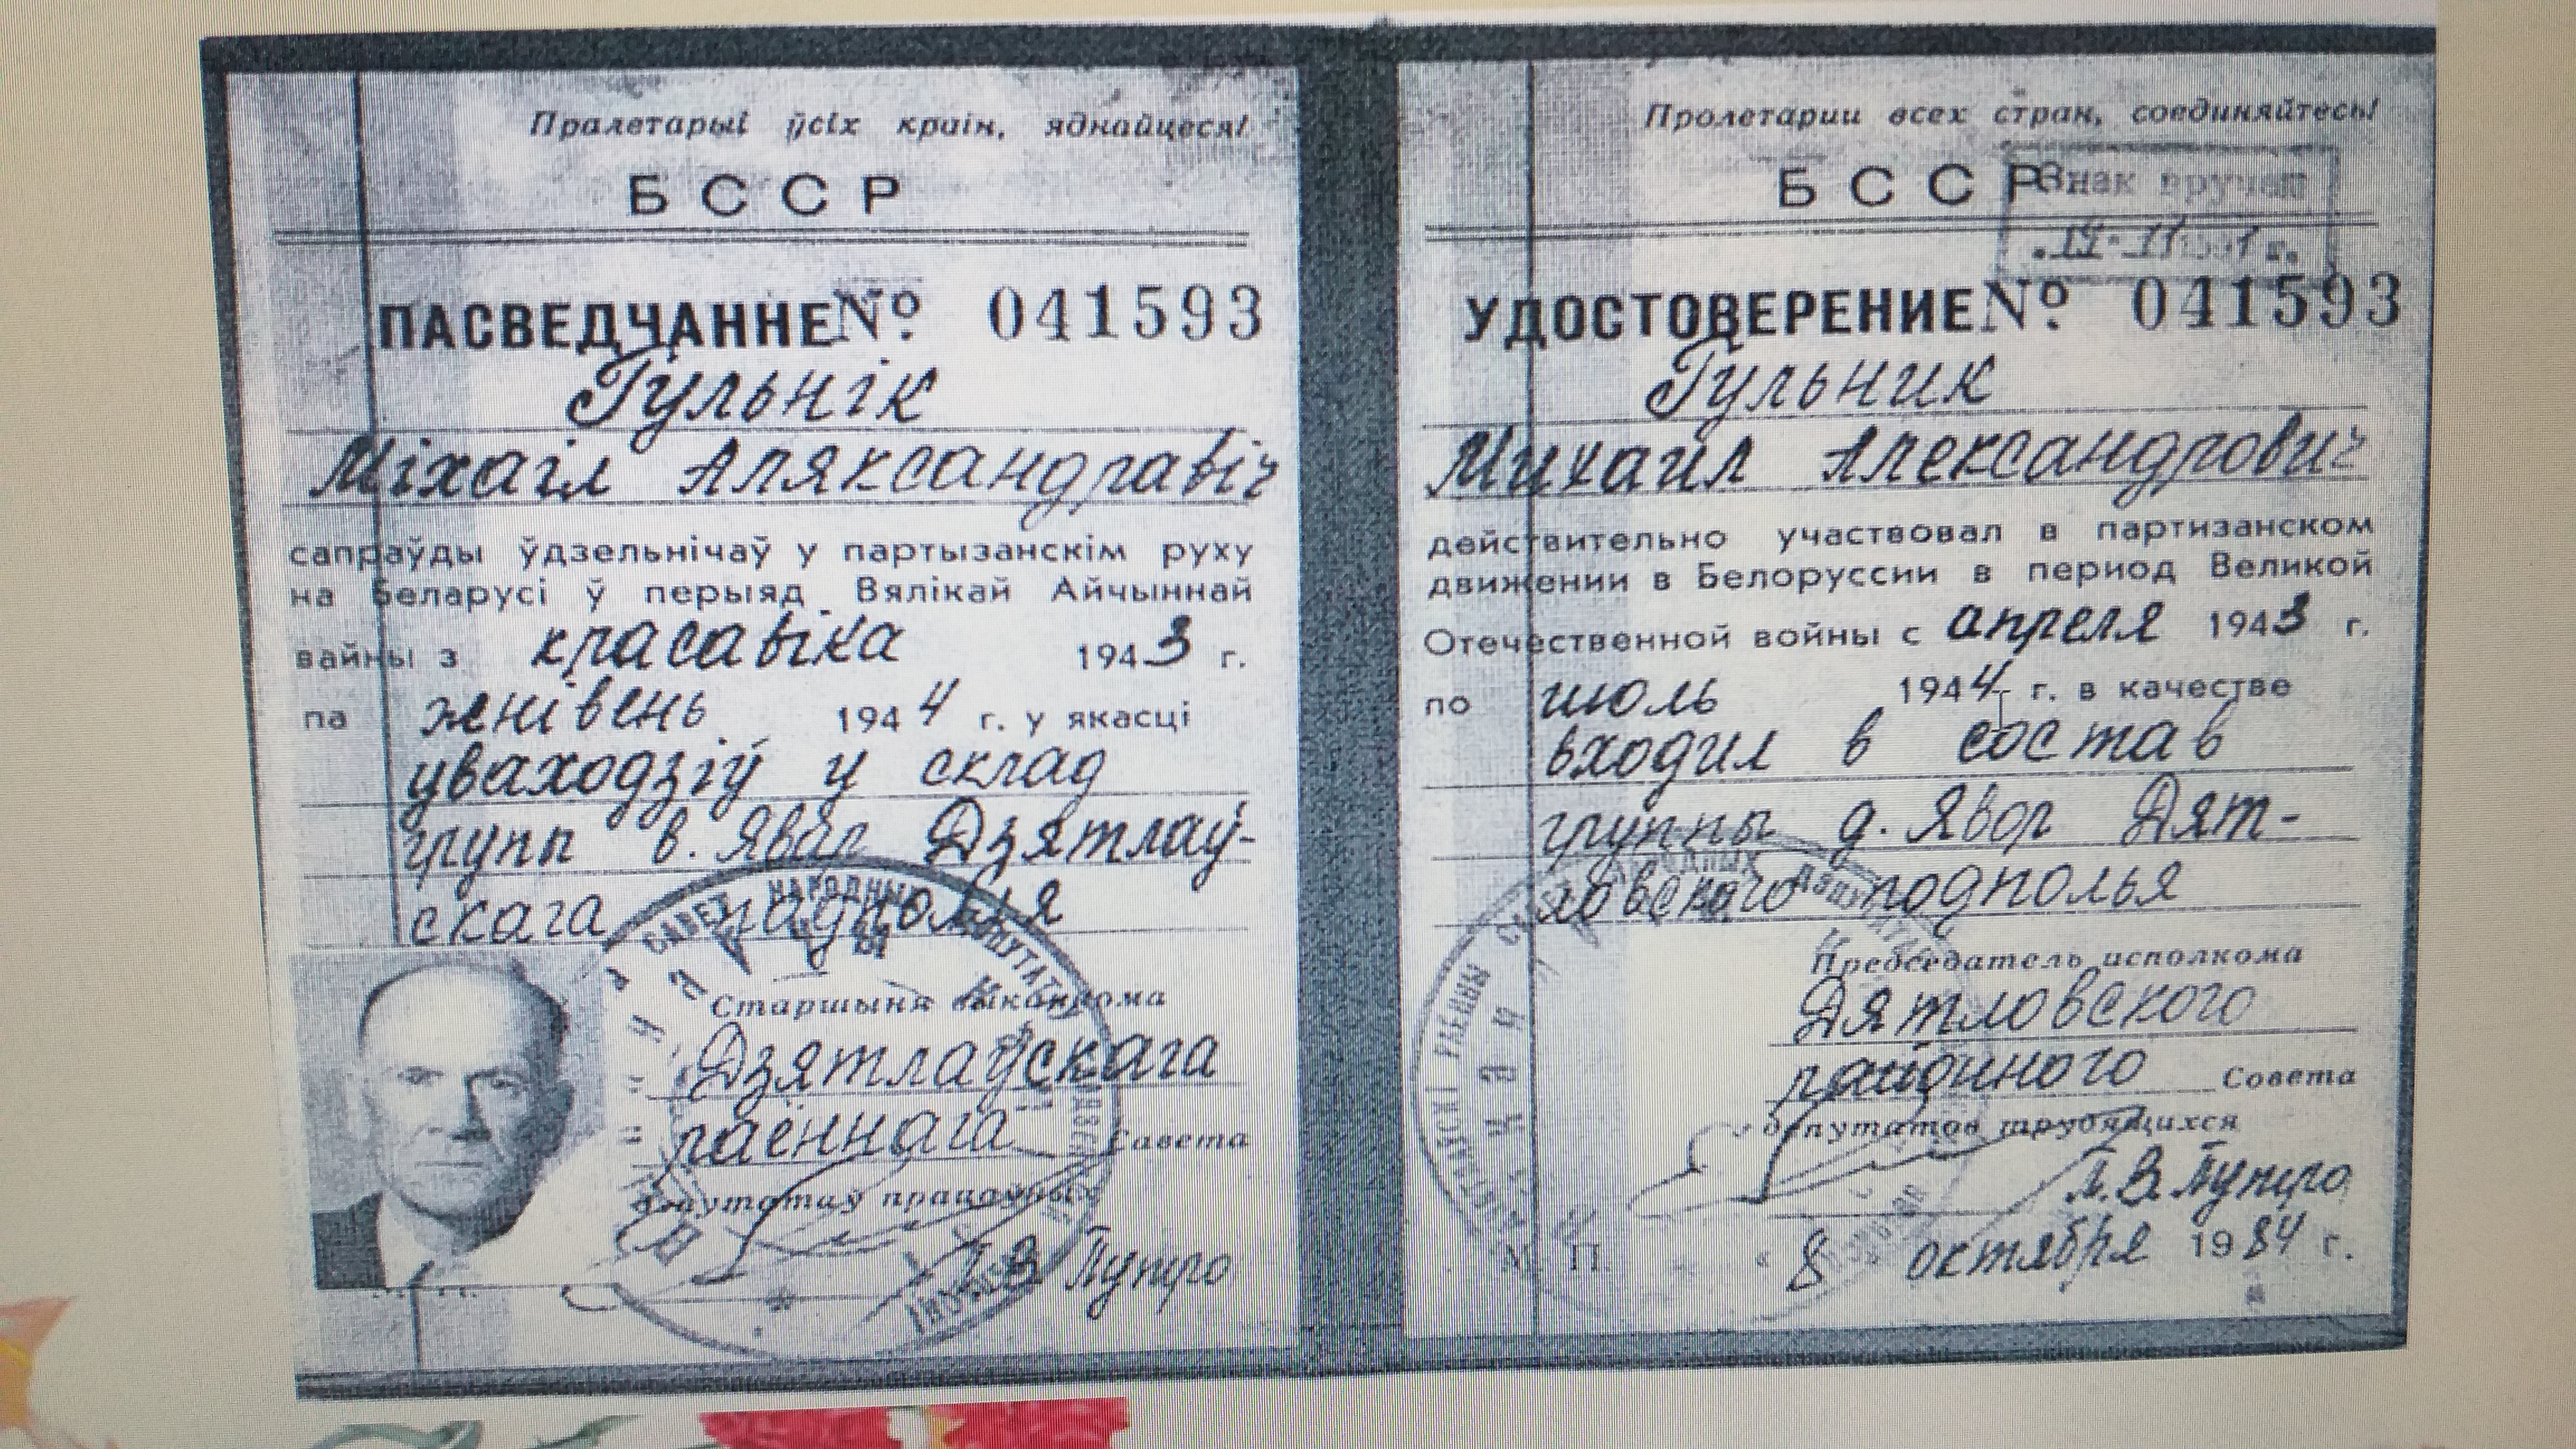 Пралетарыі ўсіх краін, яднайцеся!
БССР
ПАСВЕДЧАННЕ № 041593
Гульнік
Міхаіл Аляксандравіч
сапраўды ўдзельнічаў у партызанскім руху
на Беларусі ў перыяд Вялікай Айчыннай
вайны з красавіка 1943 г.
па жнівень 1944 г. у якасці
уваходзіў у склад
групп в. Явар Дзятлаў-
скага падполья
Старшыня выканкома
Дзятлаўскага
раённага Савета
дэпутатаў працоўных
П.В. Путро
Пролетарии всех стран, соединяйтесь!
БССР
Знак вручен
УДОСТОВЕРЕНИЕ № 041593
Гульник
Михаил Александрович
действительно участвовал в партизанском
движении в Белоруссии в период Великой
Отечественной войны с апреля 1943 г.
по июль 1944 г. в качестве
входил в состав
группы д. Явор Дят-
ловского подполья
Председатель исполкома
Дятловского
районного Совета
депутатов трудящихся
П.В. Путро
М П
8 октября 1984 г.